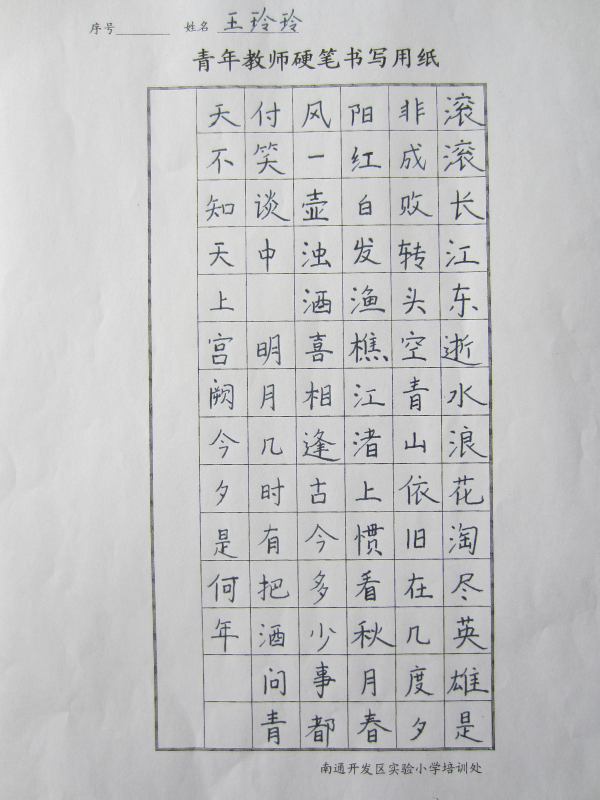 序号 姓名 王玲玲
青年教师硬笔书写用纸
滚滚长江东逝水浪花淘尽英雄是
非成败转头空青山依旧在几度夕
阳红白发渔樵江渚上惯看秋月春
风一壶浊酒喜相逢古今多少事都
付笑谈中 明月几时有把酒问青
天不知天上宫阙今夕是何年
南通开发区实验小学培训处